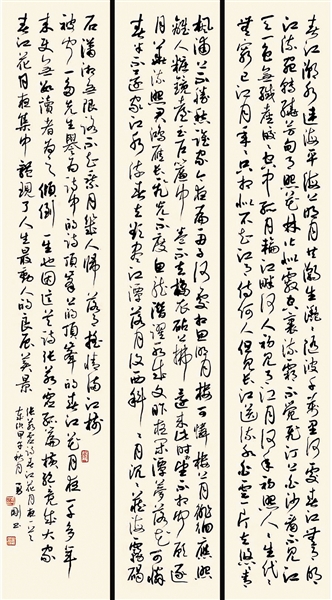 春江潮水连海平海上明月共潮生滟滟随波千万里何处春江无月明
江流宛转绕芳甸月照花林皆似霰空里流霜不觉飞汀上白沙看不见江
天一色无纤尘皎皎空中孤月轮江畔何人初见月江月何年初照人人生代代
无穷已江月年年只相似不知江月待何人但见长江送流水白云一片去悠悠青
枫浦上不胜愁谁家今夜扁舟子何处相思明月楼可怜楼上月徘徊应照
离人妆镜台玉户帘中卷不去捣衣砧上拂还来此时相望不相闻愿逐
月华流照君鸿雁长飞光不度鱼龙潜跃水成文昨夜闲潭梦落花可怜
春半不还家江水流春去欲尽江潭落月复西斜斜月沉沉藏海雾碣
石潇湘无限路不知乘月几人归落月摇情满江树
被闻一多先生誉为诗中的诗顶峰上的顶峰的春江花月夜一千多年
来使无数读者为之倾倒一生也因这一首诗张若虚孤篇横绝竟成大家
春江花月夜集中体现了人生最动人的良辰美景
张若虚诗春江花月夜一首
岁次甲午秋月刚书